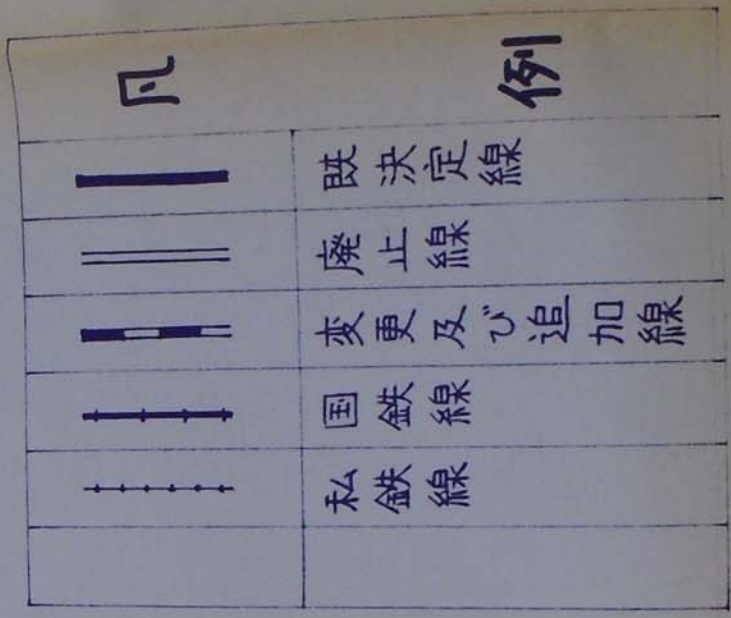 凡例
既決定線
廃止線
変更及び追加線
国鉄線
私鉄線